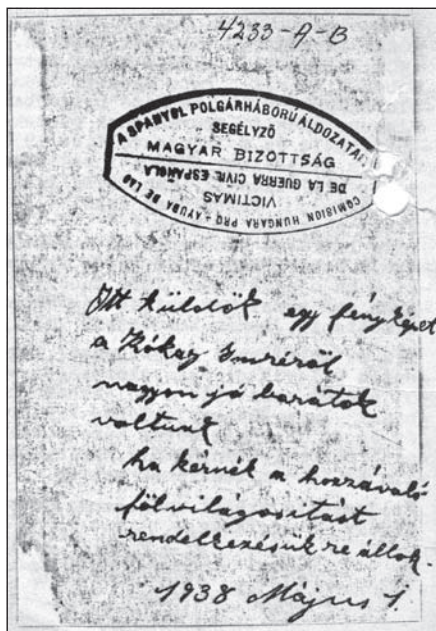 4233-A-B
A SPANYOL POLGÁRHÁBORÚ ÁLDOZATAI
SEGÉLYZŐ
MAGYAR BIZOTTSÁG
COMISION HUNGARA PRO - AYUDA DE LAS
VICTIMAS
DE LA GUERRA CIVIL ESPAÑOLA
Itt küldök egy fényképet
a Kókay Imréről
nagyon jó barátok
voltunk
ha kérnék a hozzávaló
fölvilágositást
rendelkezésükre állok.
1938 Május 1.